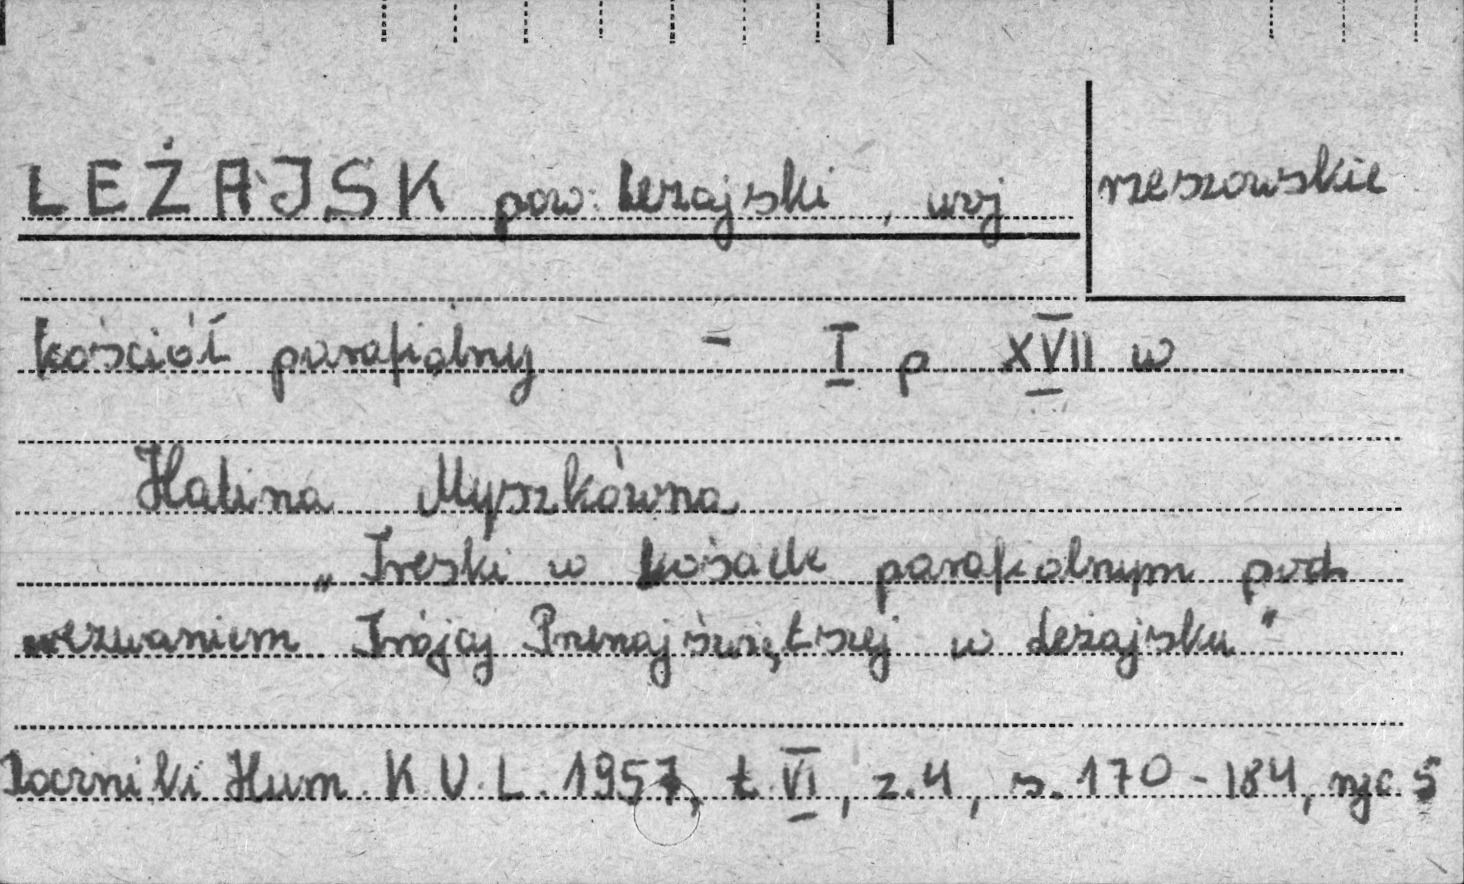 LEŻAJSK pow. Leżajski, woj rzeszowskie
kościół parafialny - I p XVII w
Halina Myszkówna
„Freski w kościele parafialnym pod
wezwaniem Trójcy Przenajświętszej w Leżajsku"
Roczniki Hum. K.U.L. 1957, t. VI, z. 4, s. 170-184, ryc. 5